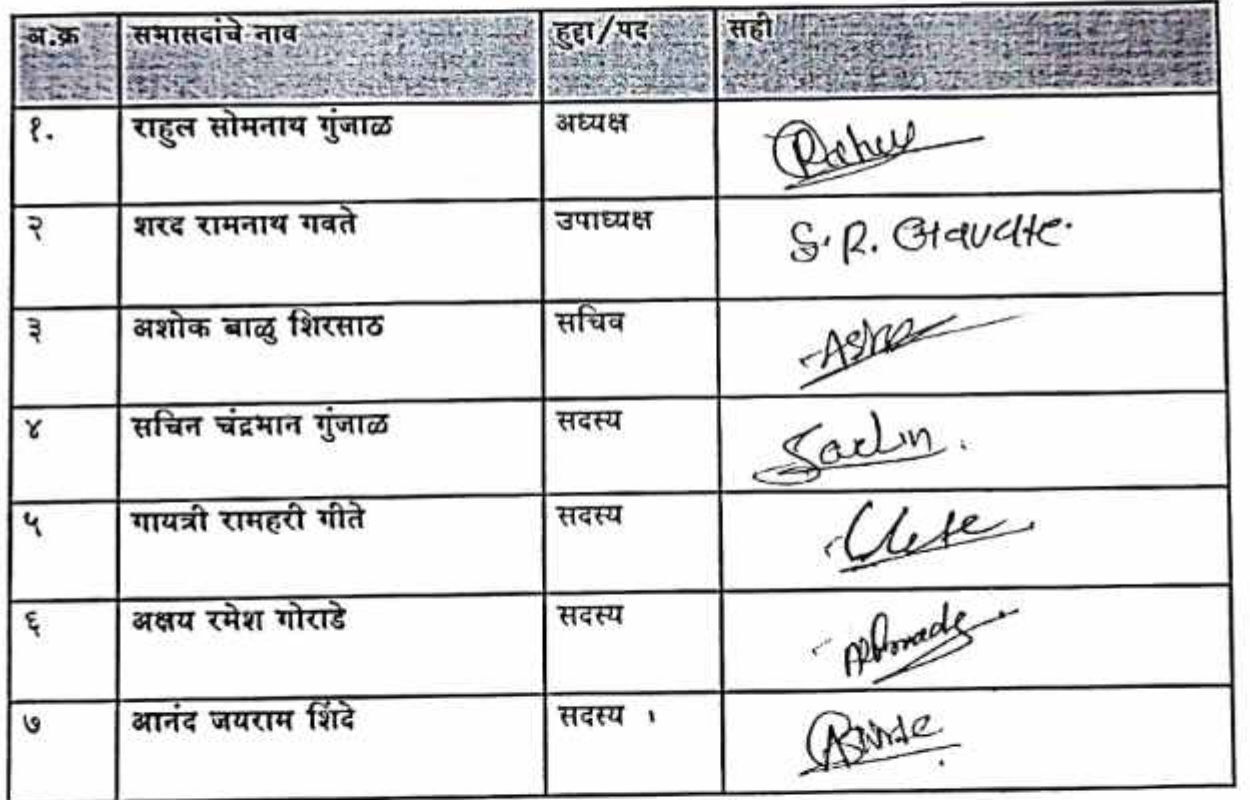 अ.क्र सभासदांचे नाव हुद्दा/पद सही
१. राहुल सोमनाथ गुंजाळ अध्यक्ष Rahul
२ शरद रामनाथ गवते उपाध्यक्ष S. R. Gavate.
३ अशोक बाळु शिरसाठ सचिव
४ सचिन चंद्रभान गुंजाळ सदस्य Sachin.
५ गायत्री रामहरी गीते सदस्य
६ अक्षय रमेश गोराडे सदस्य
७ आनंद जयराम शिंदे सदस्य